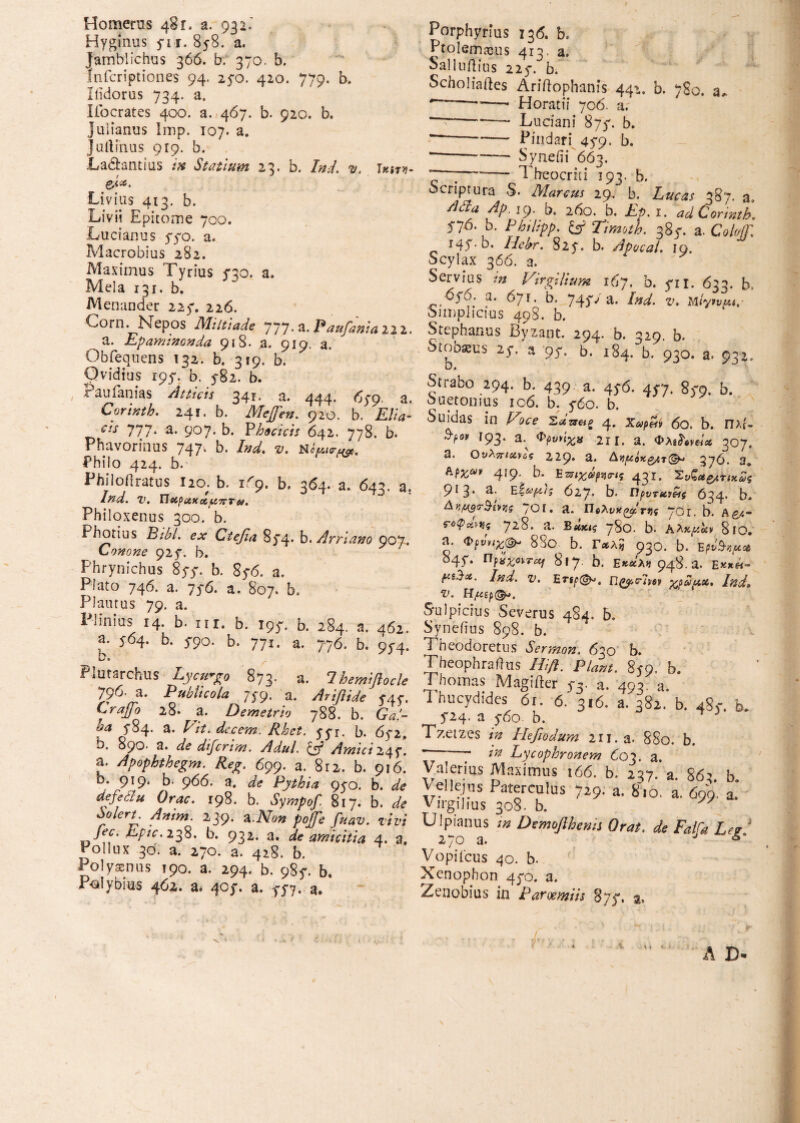 Homerus 481. a. 932.
Hyginus 511. 858. a.
Jamblichus 366. b. 370. b.
Inscriptiones 94. 250. 420. 779. b.
Isidorus 734. a.
Isocrates 400. a. 467. b. 920. b.
Julianus Imp. 107. a.
Justinus 919. b.
Lactantius in Statium 23. b. Ind. v.
Livius 413. b.
Livii Epitome 700.
Lucianus 550. a.
Macrobius 282.
Maximus Tyrius 530. a.
Mela 131. b.
Menander 225. 226.
Corn. Nepos Miltiade 777. a. Pausania 222.
a. Epaminonda 918. a. 919. a.
Obsequens 132. b. 319. b.
Ovidius 195. b. 582. b.
Pausanias Atticis 341. a. 444. 659. a.
Corinth. 241. b. Messen. 920. b. Elia-
cis 777. a. 907. b. Phocicis 642. 778. b.
Phavorinus 747. b. Ind. v.
Philo 424. b.
Philostratus 120. b. 169. b. 364. a. 643. a.
Ind. v.
Philoxenus 300. b.
Photius Bibl. ex Ctesia 854. b. Arriano 907.
Conone 925. b.
Phrynichus 855. b. 856. a.
Plato 746. a. 756. a. 807. b.
Plautus 79. a.
Plinius 14. b. 111. b. 195. b. 284. a. 462.
a. 564. b. 590. b. 771. a. 776. b. 954.
b.
Plutarchus Lycurgo 873. a. Themistocle
796. a. Publicola 759. a. Aristide 545.
Crasso 28. a. Demetrio 788. b. Gal-
ba 584. a. Vit. decem. Rhet. 551. b. 652.
b. 890. a. de discrim. Adul. & Amici 245.
a. Apophthegm. Reg. 699. a. 812. b. 916.
b. 919. b. 966. a. de Pythia 950. b. de
defectu Orac. 198. b. Sympos. 817. b. de
Solert. Anim. 239. a. Non posse suav. vivi
sec. Epic. 238. b. 932. a. de amicitia 4. a.
Pollux 30. a. 270. a. 428. b.
Polyænus 190. a. 294. b. 985. b.
Polybius 462. a. 405. a. 557. a.
Porphyrius 136. b.
Ptolemæus 413. a.
Sallustius 225. b.
Scholiastes Aristophanis 442. b. 780. a.
——— Horatii 706. a.
——— Luciani 875. b.
——— Pindari 459. b.
——— Synesii 663.
——— Theocriti 193. b.
Scriptura S. Marcus 29. b. Lucas 387. a.
Acta Ap. 19. b. 260. b. Ep. 1. ad Corinth.
576. b. Philipp. & Timoth. 385. a. Coloss.
145. b. Hebr. 825. b. Apocal. 19.
Scylax 366. a.
Servius in Virgilium 167. b. 511. 633. b.
656. a. 671. b. 745. a. Ind. v.
Simplicius 498. b.
Stephanus Byzant. 294. b. 329. b.
Stobæus 25. a 95. b. 184. b. 930. a. 932.
b.
Strabo 294. b. 439 a. 456. 457. 859. b.
Suetonius 106. b. 560. b.
Suidas in Voce 4. Χωρεῖν 60. b. Πλί-
193. a. 211. a. 307.
a. 229. a. 376. a.
419. b. 431.
913. a. 627. b. 634. b.
701. a. 701. b.
728. a. Βάκις 780. b. 810.
a. 880 b. 930. b.
845. 817. b. 948. a.
Ind. v. Ind.
v.
Sulpicius Severus 484. b.
Synesius 898. b.
Theodoretus Sermon. 630 b.
Theophrastus Hist. Plant. 859. b.
Thomas Magister 53. a. 493. a.
Thucydides 61. 6. 316. a. 382. b. 485. b.
524. a 560 b.
Tzetzes in Hesiodum 211. a. 880. b.
——— in Lycophronem 603. a.
Valerius Maximus 166. b. 237. a. 863. b.
Vellejus Paterculus 729. a. 810. a. 699. a.
Virgilius 308. b.
Ulpianus in Demosthenis Orat. de Falsa Leg.
270 a.
Vopiscus 40. b.
Xenophon 450. a.
Zenobius in Parœmiis 875. a.
A D-